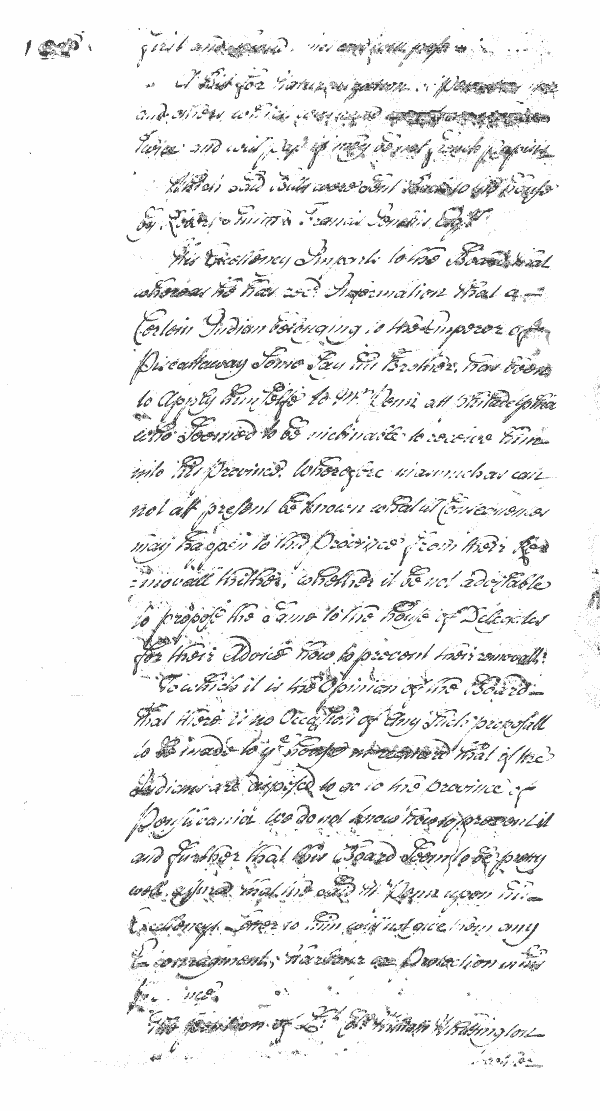 first and
A Bill for naturalization
and others which was read
twice and will pass if may be not french papists
Which said Bills were sent to the house
by Robert Smith & Francis Esqrs
His Excellency Imparts to the Board that
whereas he has recd Information that a
Certein Indian belonging to the Emperor of
Piscattaway Some Say his Brother, has been
to apply himselfe to Mr Penn att Philadelphia
who Seemed to be inclinable to receive him
into his Province. Wherefore inasmuch as can
not att present be known what ill Consequences
may happen to this Province from their Re
movall thither, whether it be not adviseable
to propose the Same to the house of Delegates
for their Advice how to prevent their removall:
To which it is the Opinion of the Board
that there is no Occasion of any Such proposall
to be made to ye house in reguard that if the
Indians are disposed to go to the province of
Pensilvania We do not know how to prevent it
and further that this Board Seem to be pretty
well assured that the said Mr Penn upon his
Excellencys Letter to him will not give them any
Encouragment, harbour or Protection in his
Province.
The petition of Lt Coll William Whittington